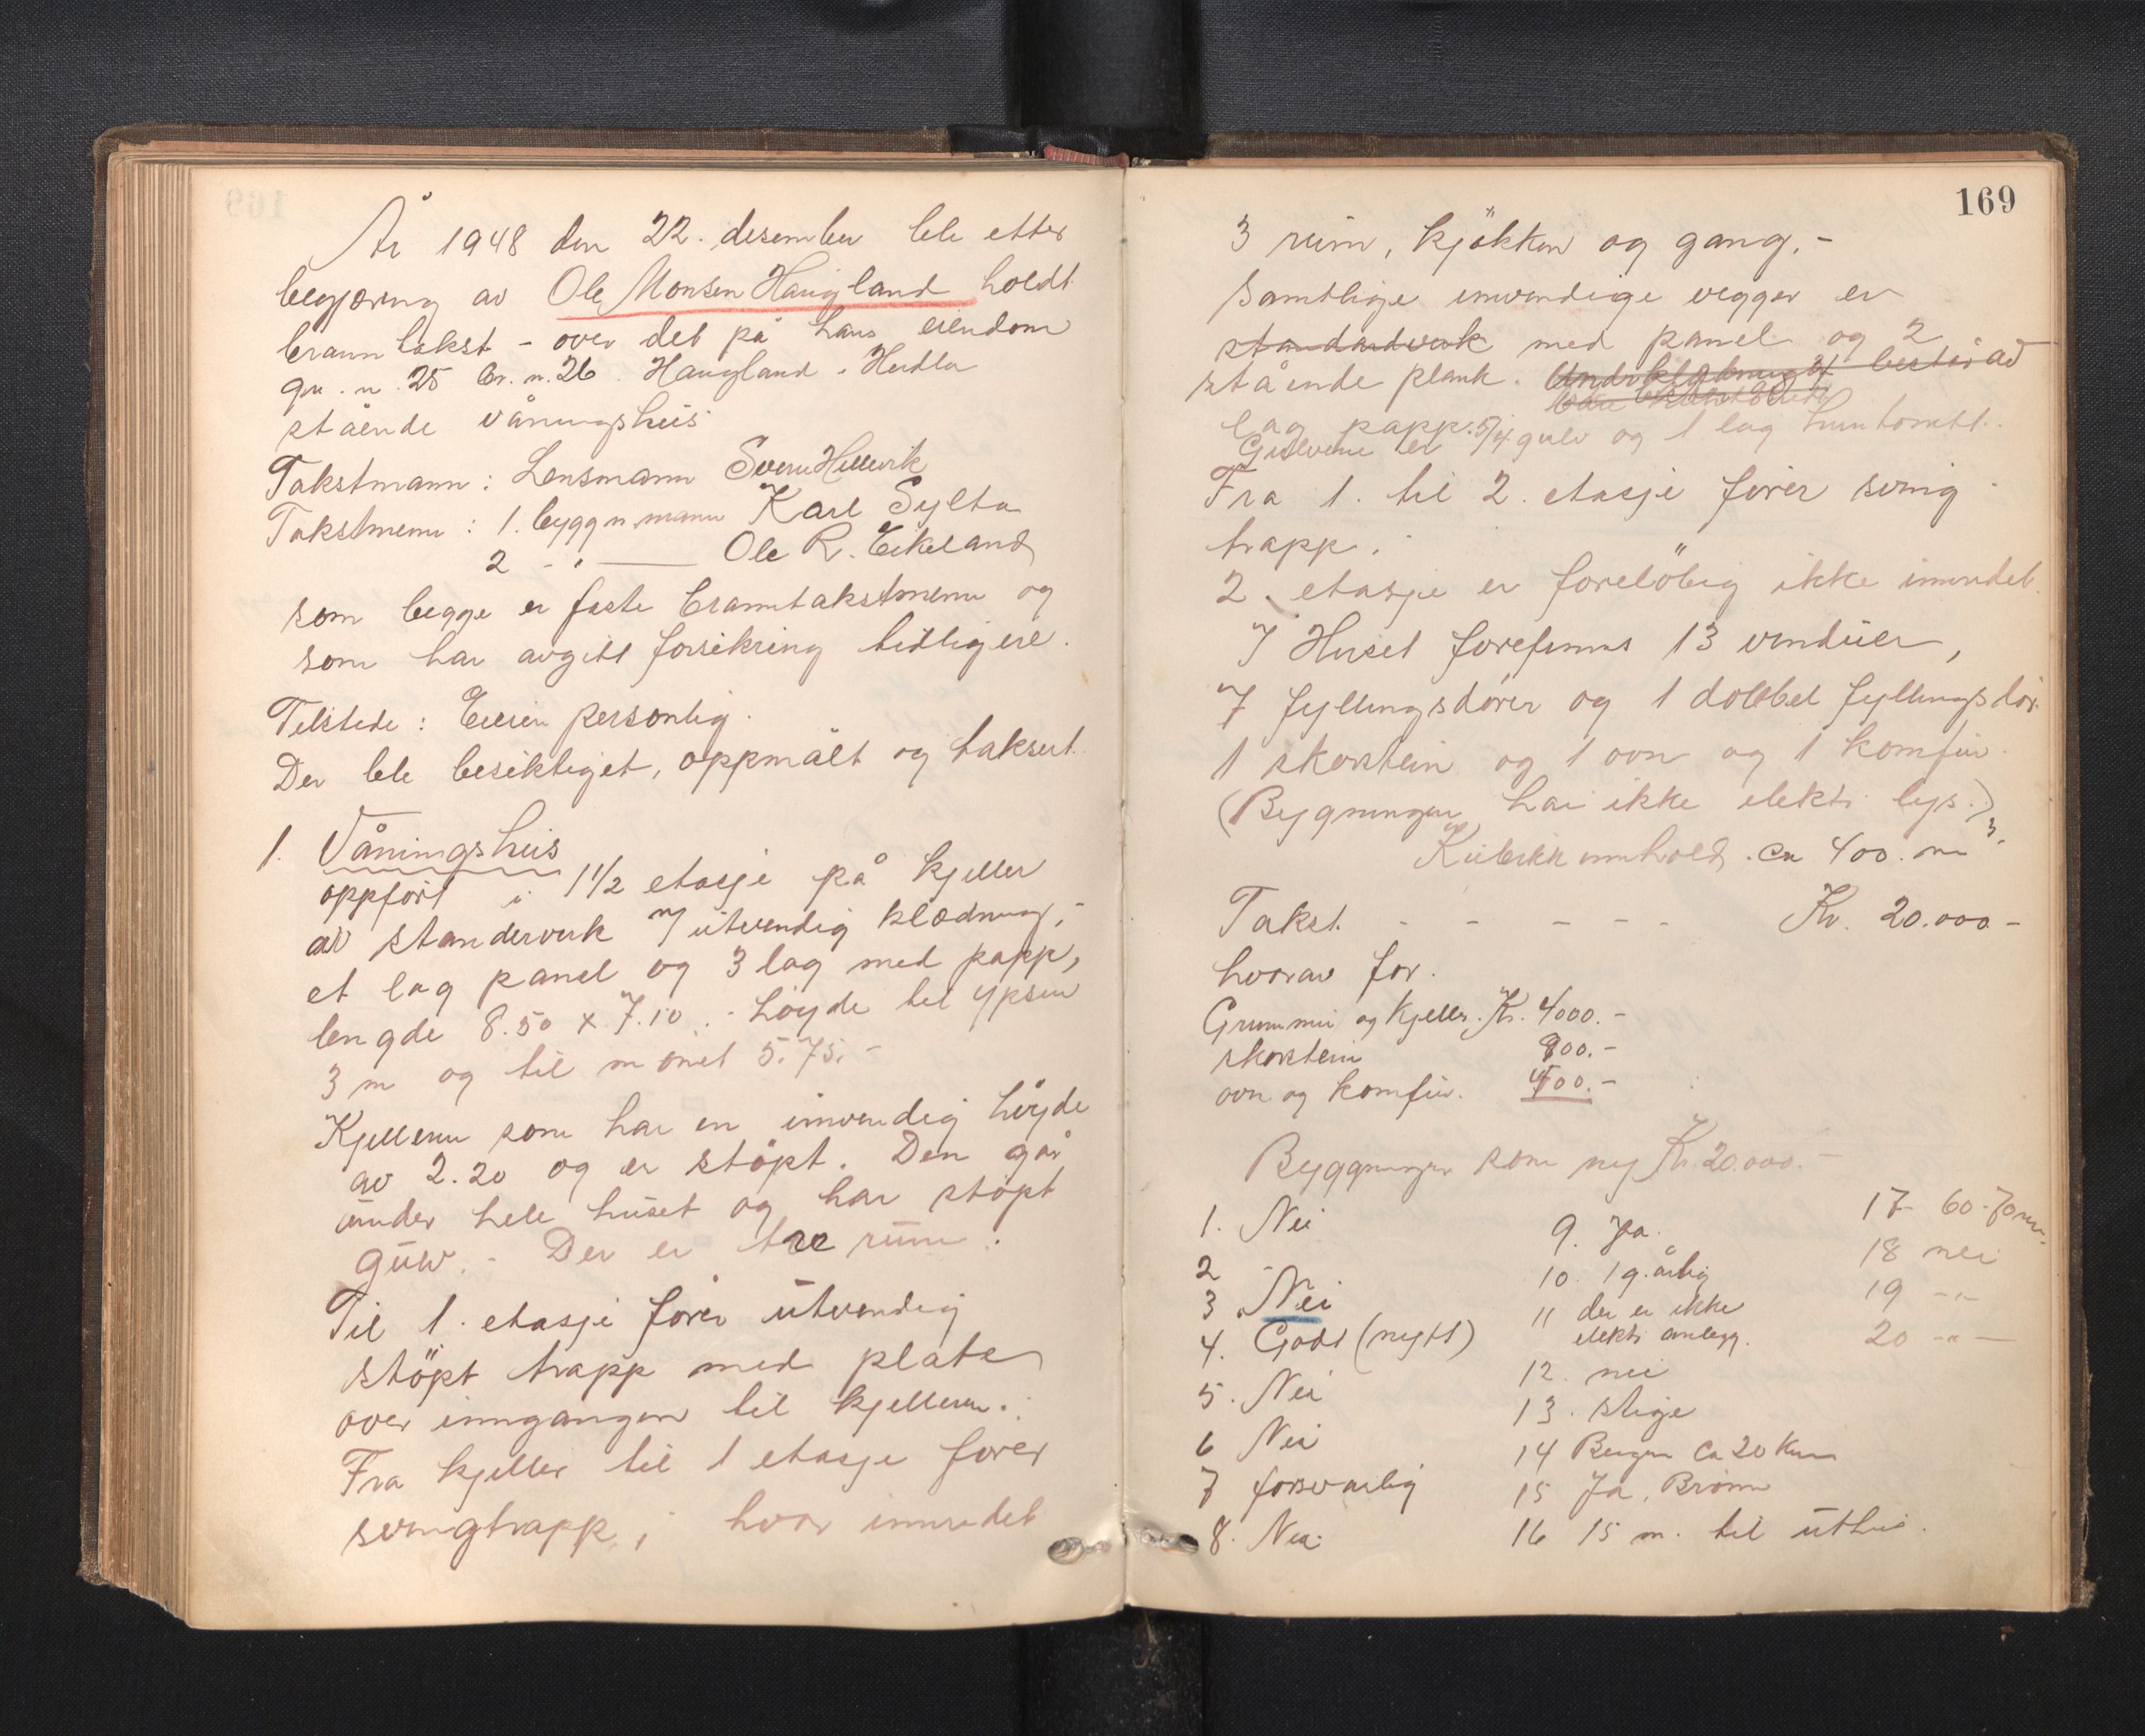 År 1948 den 22. desember ble etter
begjæring av Ole Monsen Haugland holdt
branntakst - over det på hans eiendom
gr. n. 25 br. n. 26. Haugland i Herdla
stående våningshus
Takstmann: Lensmann Sverre Hillevik
Takstmenn: 1. byggn.mann Karl Sylta
2 - " - Ole R. Eikeland
som begge er faste branntakstmenn og
som har avgitt forsikring tidligere.
Tilstede: Eieren personlig.
Der ble besiktiget, oppmålt og taksert.
1. Våningshus
oppført i 1 1/2 etasje på kjeller
av standerverk m/ utvendig klædning,-
et lag panel og 3 lag med papp,
lengde 8.50 x 7.10. - høyde til gesim
3 m og til mønet 5.75.-
Kjelleren som har en innvendig høyde
av 2.20 og er støpt. Den går
under hele huset og har støpt
gulv. - Der er tre rum.
Til 1. etasje fører utvendig
støpt trapp med plate
over inngangen til kjelleren.
Fra kjeller til 1 etasje fører
svingtrapp, hvor innredet
169
3 rum, kjøkken og gang.-
Samtlige innvendige vegger er
standardverk med panel og 2
stående plank. består av
lag papp.
Gulvene er 5/4 gulv og 1 lag
Fra 1. til 2. etasje fører sving
trapp.
2. etasje er foreløbig ikke innredet.
I Huset forefinnes 13 vinduer,
7 fyllingsdører og 1 dobbel fyllingsdør.
1 skorstein og 1 ovn og 1 komfur.
(Bygningen har ikke elektr. lys.)
Kubikkinnhold. ca 400. m3.
Takst. - - - - - Kr. 20.000.-
hvorav for.
Grunnmur og kjeller. Kr. 4000.-
skorstein 800.-
ovn og komfur. 400.-
Byggninger som ny Kr. 20.000.-
1. Nei
2 -
3 Nei
4. Godt (nytt)
5. Nei
6 Nei
7 forsvarlig
8. Nei.
9. Ja.
10. 1 g. årlig
11 der er ikke
elektr. anlegg.
12. nei
13. stige
14 Bergen ca 20 km
15 Ja, Brønn
16 15 m. til uthus.
17 60-70 m.
18 nei
19 -"-
20 -"-